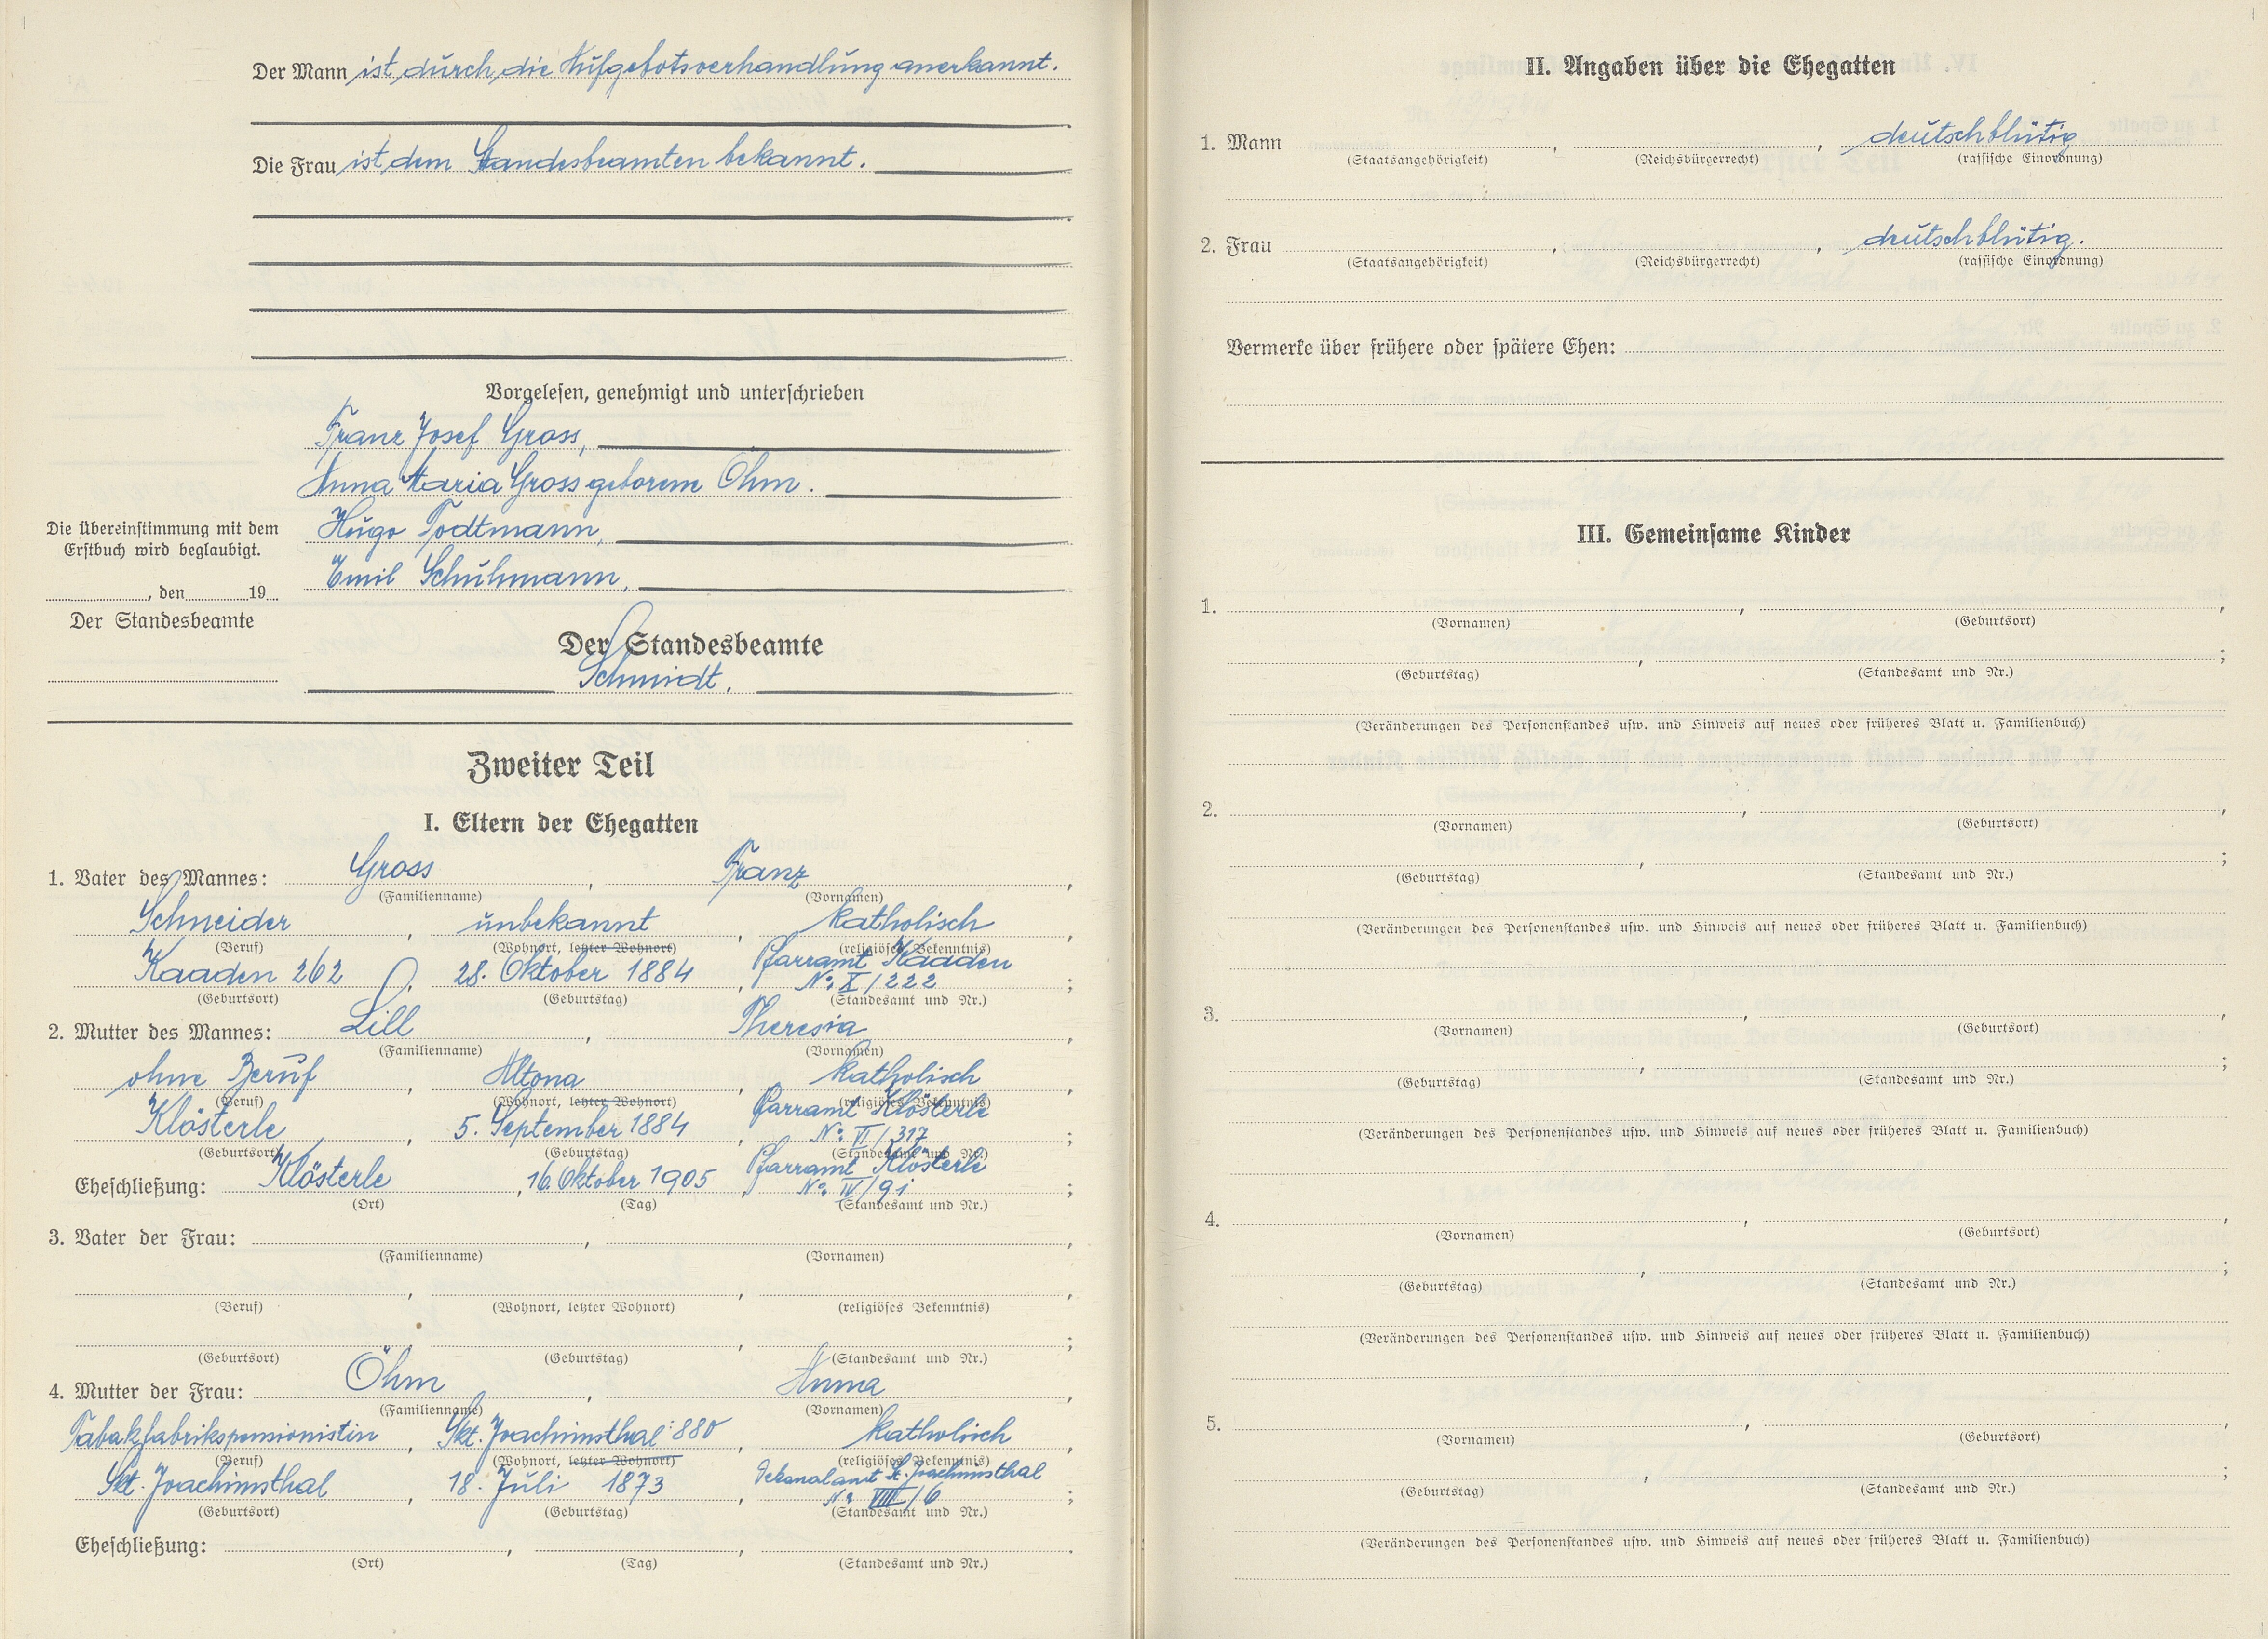 Der Mann ist durch die Aufgebotsverhandlung anerkannt.
Die Frau ist dem Standesbeamten bekannt.
Vorgelesen, genehmigt und unterschrieben
Franz Josef Gross,
Anna Maria Gross geborene Öhm.
Hugo Todtmann,
Emil Schuhmann,
Die Übereinstimmung mit dem
Erstbuch wird beglaubigt.
, den 19
Der Standesbeamte
Der Standesbeamte
Schmidt.
Zweiter Teil
I. Eltern der Ehegatten
1. Vater des Mannes: Gross, Franz,
(Familienname) (Vornamen)
Schneider, unbekannt, katholisch,
(Beruf) (Wohnort, letzter Wohnort) (religiöses Bekenntnis)
Kaaden 262, 28. Oktober 1884, Pfarramt Kaaden
No. X/222;
(Geburtsort) (Geburtstag) (Standesamt und Nr.)
2. Mutter des Mannes: Lill, Theresia,
(Familienname) (Vornamen)
ohne Beruf, Altona, katholisch,
(Beruf) (Wohnort, letzter Wohnort) (religiöses Bekenntnis)
Klösterle, 5. September 1884, Pfarramt Klösterle
No. VI/317;
(Geburtsort) (Geburtstag) (Standesamt und Nr.)
Eheschließung: Klösterle, 16. Oktober 1905, Pfarramt Klösterle
No. IV/91;
(Ort) (Tag) (Standesamt und Nr.)
3. Vater der Frau: , ,
(Familienname) (Vornamen)
(Beruf) (Wohnort, letzter Wohnort) (religiöses Bekenntnis)
(Geburtsort) (Geburtstag) (Standesamt und Nr.)
4. Mutter der Frau: Öhm, Anna,
(Familienname) (Vornamen)
Tabakfabrikspensionistin, Skt. Joachimsthal 880, katholisch,
(Beruf) (Wohnort, letzter Wohnort) (religiöses Bekenntnis)
Skt. Joachimsthal, 18. Juli 1873, Dekanalamt St. Joachimsthal
No. VIII/6;
(Geburtsort) (Geburtstag) (Standesamt und Nr.)
Eheschließung: , , .
(Ort) (Tag) (Standesamt und Nr.)
II. Angaben über die Ehegatten
1. Mann , , deutschblütig
(Staatsangehörigkeit) (Reichsbürgerrecht) (rassische Einordnung)
2. Frau , , deutschblütig.
(Staatsangehörigkeit) (Reichsbürgerrecht) (rassische Einordnung)
Vermerke über frühere oder spätere Ehen:
III. Gemeinsame Kinder
1. , ,
(Vornamen) (Geburtsort)
, ;
(Geburtstag) (Standesamt und Nr.)
(Veränderungen des Personenstandes usw. und Hinweis auf neues oder früheres Blatt u. Familienbuch)
2. , ,
(Vornamen) (Geburtsort)
, ;
(Geburtstag) (Standesamt und Nr.)
(Veränderungen des Personenstandes usw. und Hinweis auf neues oder früheres Blatt u. Familienbuch)
3. , ,
(Vornamen) (Geburtsort)
, ;
(Geburtstag) (Standesamt und Nr.)
(Veränderungen des Personenstandes usw. und Hinweis auf neues oder früheres Blatt u. Familienbuch)
4. , ,
(Vornamen) (Geburtsort)
, ;
(Geburtstag) (Standesamt und Nr.)
(Veränderungen des Personenstandes usw. und Hinweis auf neues oder früheres Blatt u. Familienbuch)
5. , ,
(Vornamen) (Geburtsort)
, ;
(Geburtstag) (Standesamt und Nr.)
(Veränderungen des Personenstandes usw. und Hinweis auf neues oder früheres Blatt u. Familienbuch)